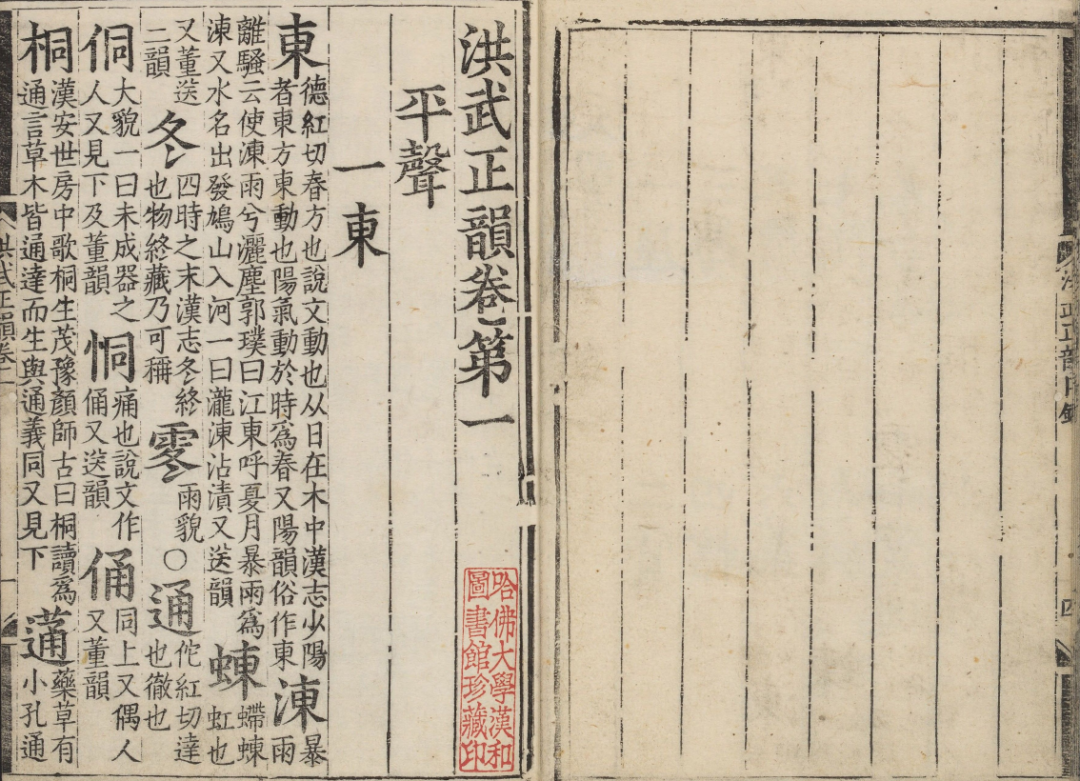 洪武正韻目錄
四
洪武正韻卷第一
哈佛大學漢和
圖書館珍藏印
平聲
一東
東德紅切春方也說文動也从日在木中漢志少陽者東方東動也陽氣動於時爲春又陽韻俗作東涷暴雨
離騷云使涷雨兮灑塵郭璞曰江東呼夏月暴雨爲涷又水名出發鳩山入河一曰瀧涷沾漬又送韻蝀螮蝀虹也
又董送二韻冬四時之末漢志冬終也物終藏乃可稱䨦雨貌○通佗紅切達也徹也
侗大貌一曰未成器之人又見下及董韻恫痛也說文作俑又送韻俑同上又偶人又董韻
桐漢安世房中歌桐生茂豫顏師古曰桐讀爲通言草木皆通達而生與通義同又見下蓪藥草有小孔通
洪武正韻卷一
一